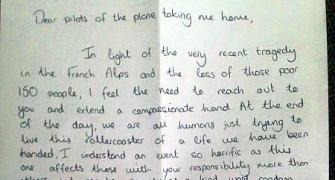 Dear pilots of the plane taking me home,
In light of the very recent tragedy
in the French Alps and the loss of those poor
150 people, I feel the need to reach out to
you and extend a compassionate hand. At the end
of the day, we are all humans just trying to
live this rollercoaster of a life we have been
handed. I understand an event so horrific as this
one affects those with your responsibility more than
kind word random